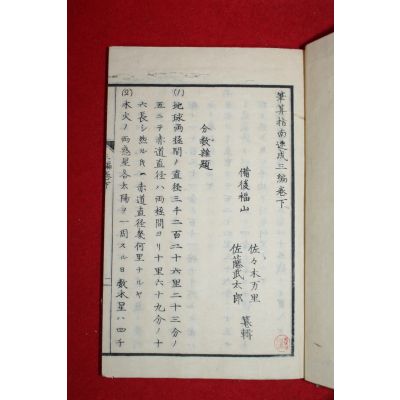 筆算指南速成三編巻下
備後福山
佐々木万里
佐藤武太郎
纂輯
分数雑題
(1)地球両極間ノ直径三千二百二十六里二十三分ノ
五ニテ赤道直径ハ両極間ヨリ十里六十九分ノ十
六長シ然ル片ハ赤道直径幾何里ナルヤ
(2)水火ノ両惑星各太陽ヲ一周スル日数水星ハ四千